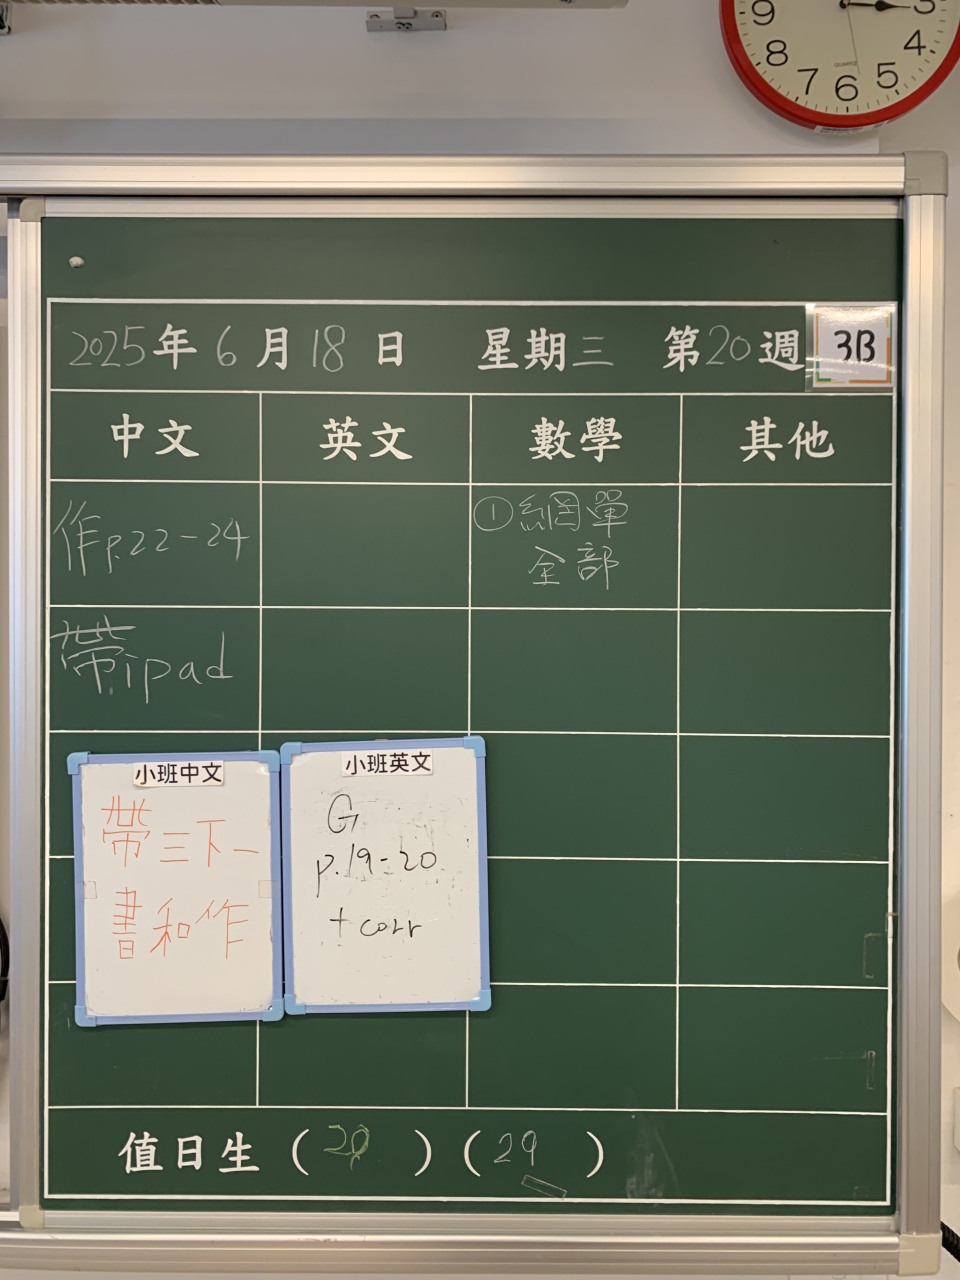 9 3
8 4
7 6 5
QUARTZ
2025年6月18日 星期三 第20週 3B
中文 英文 數學 其他
作p.22-24
①網單
全部
帶ipad
小班中文
帶三下一
書和作
小班英文
G
p.19-20
+corr
值日生 ( ) (29)